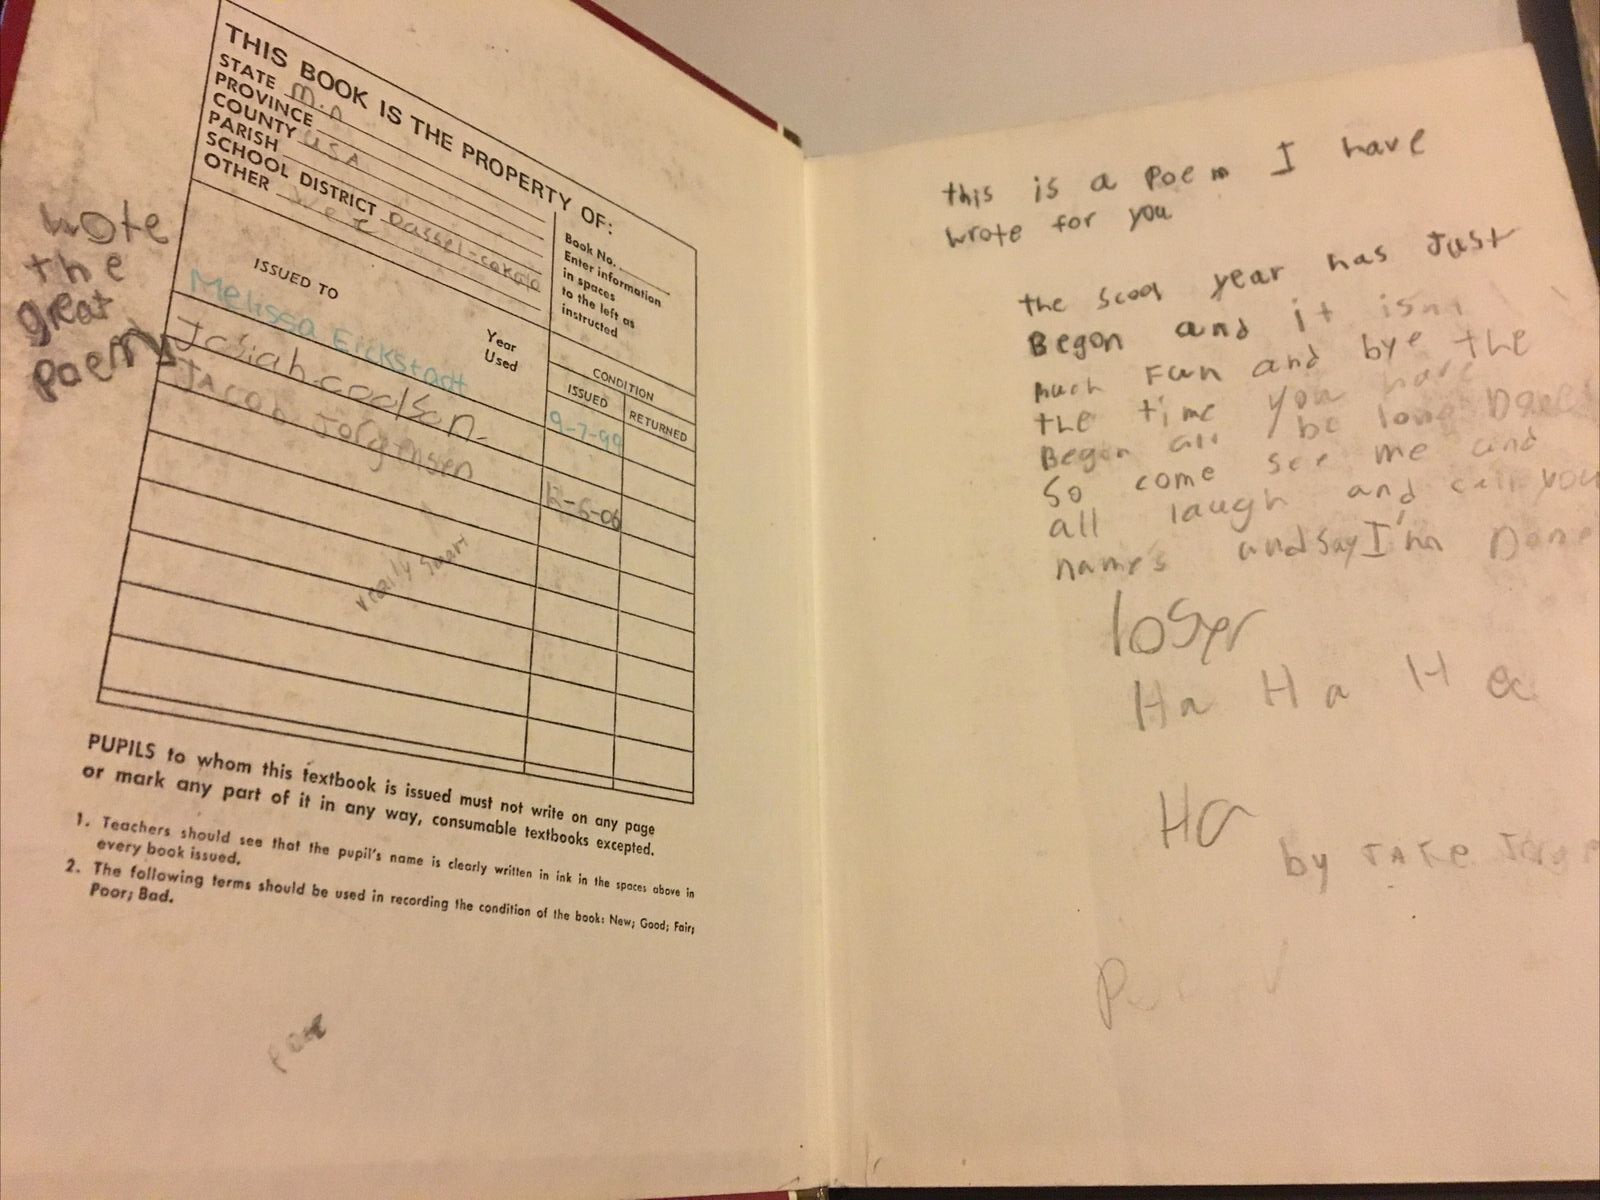 THIS BOOK IS THE PROPERTY OF:
STATE M.n
PROVINCE
COUNTY USA
PARISH
SCHOOL DISTRICT Dassel-cokato
OTHER
Book No.
Enter information
in spaces
to the left as
instructed
ISSUED TO
Year
Used
CONDITION
ISSUED
RETURNED
Melissa Erickstadt 9-7-99
Josiah coolson
Jacob Jorgensen 12-6-06
really smart
wrote
the
great
poem
PUPILS to whom this textbook is issued must not write on any page
or mark any part of it in any way, consumable textbooks excepted.
1. Teachers should see that the pupil's name is clearly written in ink in the spaces above in
every book issued.
2. The following terms should be used in recording the condition of the book: New; Good; Fair;
Poor; Bad.
this is a Poem I have
wrote for you
the scool year has Just
Began and it isnt
much Fun and bye the
the time you have
Began all be long Done
So come see me and
all laugh and call you
names and say I'm Done
loser
Ha Ha Ha
Ha
by JAKe